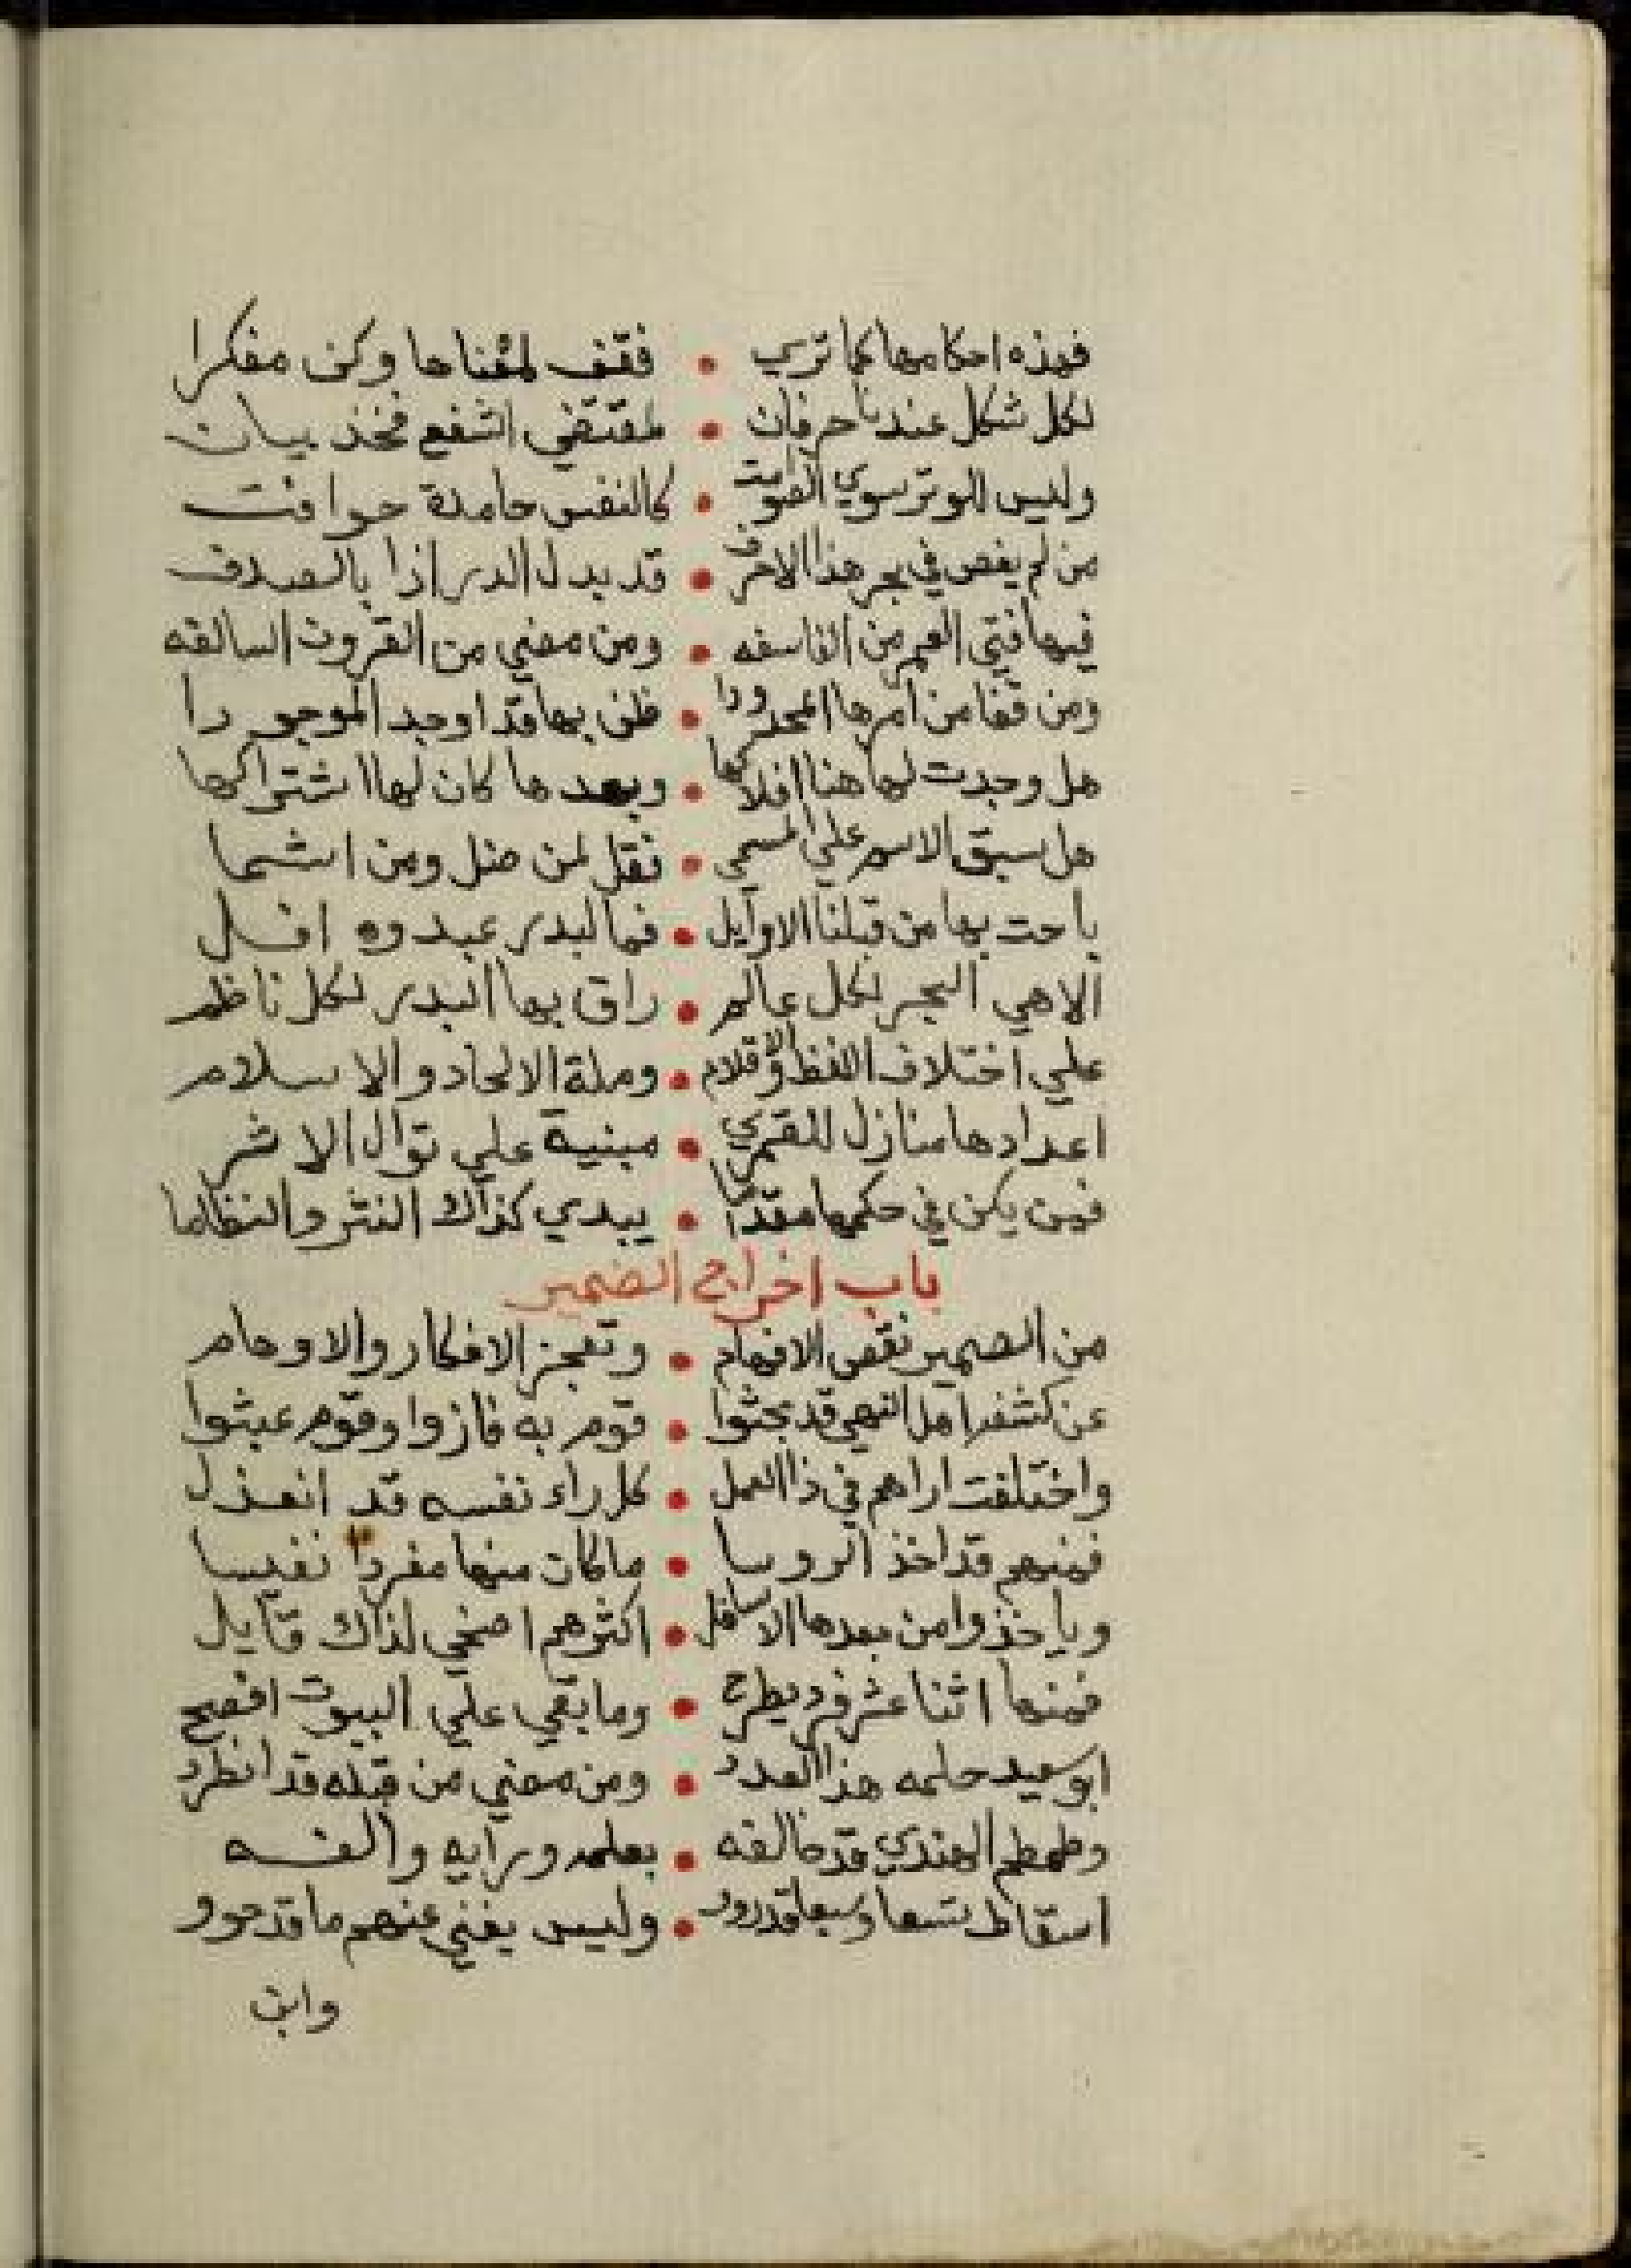 فهذه احكامها كما تري • فقف لمغناها وكن مفكرا
لكل شكل عندنا حرفان • لمقتضي الشفع فخذ بيان
وليس للوتر سوي الصوامت • كالنفس حاملة حوافت
من لم يغص في بحر هذا الاحرف • قد بدل الدر اذا بالصدف
فيها فتي العجم من الفلاسفه • ومن مضي من القرون السالفه
ومن قفا من امرها المحدودا • ظن بها قد اوجد الموجودا
هل وجدت لها هنا افلاكها • وبعدها كان لها اشتراكها
هل سبق الاسم علي المسمي • نقل لمن ضل ومن اشما
باحت بها من قبلنا الاوايل • فما لبدر عبدوه افل
الا هي البحر لكل عالم • راق بها البدر لكل ناظم
علي اختلاف اللفظ والاقلام • وملة الالحاد والاسلام
اعدادها منازل للقمري • مبنية علي توال الاشر
فمن يكن في حكمها مقداما • يبدي كذاك النثر والنظاما
باب اخراج الضمير
من الضمير نقص الافهام • وتعجز الافكار والاوهام
عن كشفه اهل النهي قد بحثوا • قوم به فازوا وقوم عبثوا
واختلفت اراهم في ذا العمل • كل راء نفسه قد انعذل
فمنهم قد اخذ الروسا • ما كان منها مفردا نفيسا
وياخذوا من بعدها الاسافل • اكثرهم اضحي لذاك قايل
فمنها اثنا عشر فرد يطرح • وما بقي علي البيوت افصح
ابو سعيد حلمه هذا العدد • ومن مضي من قبله قد انطرد
وطمطم الهندي قد خالفه • بعلمه ورايه والفه
اسقاط تسعا وسبعا قد روو • وليس يغني عنهم ما قد حوو
وابن